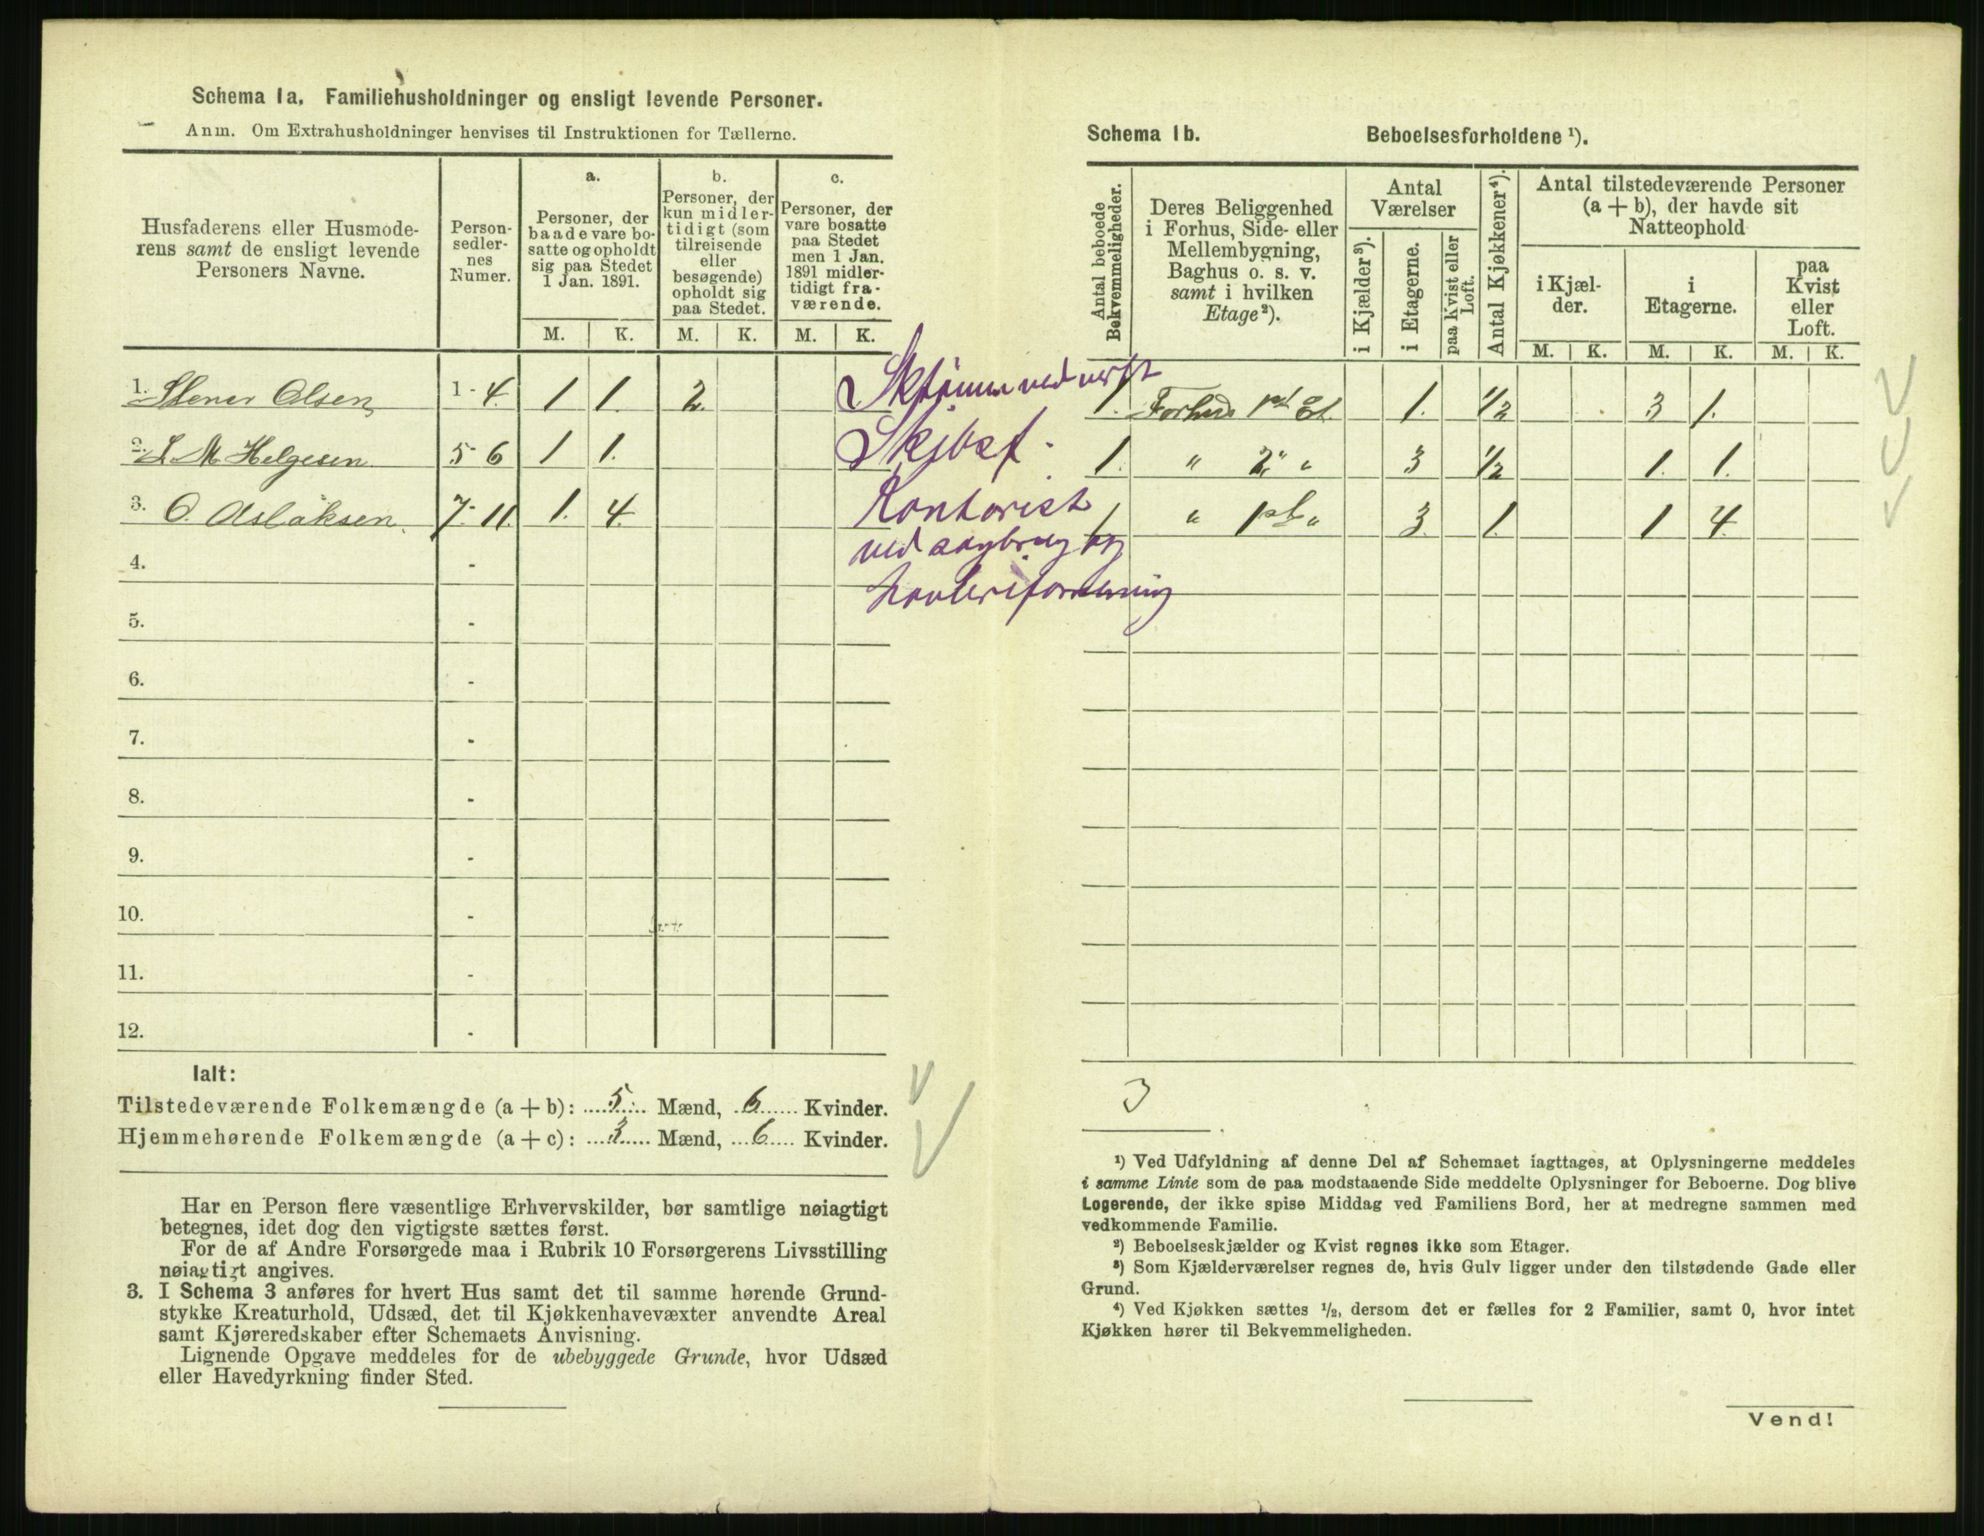 Schema 1a. Familiehusholdninger og ensligt levende Personer.
Anm. Om Extrahusholdninger henvises til Instruktionen for Tællerne.
Husfaderens eller Husmoderens samt de ensligt levende Personers Navne.
Personsedlernes Numer.
a.
Personer, der baade vare bosatte og opholdt sig paa Stedet 1 Jan. 1891.
b.
Personer, der kun midlertidigt (som tilreisende eller besøgende) opholdt sig paa Stedet.
c.
Personer, der vare bosatte paa Stedet men 1 Jan. 1891 midlertidigt fraværende.
M. K. M. K. M. K.
1. Stener Olsen 1-4. 1 1. 2.
2. L M Helgesen 5-6 1 1.
3. O. Aslaksen. 7-11. 1. 4.
4. -
5. -
6. -
7. -
8. -
9. -
10. -
11. -
12. -
ved
Kontorist
ved
og
Ialt:
Tilstedeværende Folkemængde (a + b): 5 Mænd, 6 Kvinder.
Hjemmehørende Folkemængde (a + c): 3 Mænd, 6 Kvinder.
Har en Person flere væsentlige Erhvervskilder, bør samtlige nøiagtigt
betegnes, idet dog den vigtigste sættes først.
For de af Andre Forsørgede maa i Rubrik 10 Forsørgerens Livsstilling
nøiagtigt angives.
3. I Schema 3 anføres for hvert Hus samt det til samme hørende Grund-
stykke Kreaturhold, Udsæd, det til Kjøkkenhavevæxter anvendte Areal
samt Kjøreredskaber efter Schemaets Anvisning.
Lignende Opgave meddeles for de ubebyggede Grunde, hvor Udsæd
eller Havedyrkning finder Sted.
Schema 1b. Beboelsesforholdene ¹).
Antal beboede Bekvemmeligheder.
Deres Beliggenhed i Forhus, Side- eller Mellembygning, Baghus o. s. v. samt i hvilken Etage²).
Antal Værelser
i Kjælder³).
i Etagerne.
paa Kvist eller Loft.
Antal Kjøkkener⁴).
Antal tilstedeværende Personer (a + b), der havde sit Natteophold
i Kjælder.
i Etagerne.
paa Kvist eller Loft.
M. K. M. K. M. K.
1. Forhus 1st Et. 1. 1/2 3 1.
1. " 2. " 3 1/2 1. 1.
1 " 1st " 3. 1. 1 4.
3
¹) Ved Udfyldning af denne Del af Schemaet iagttages, at Oplysningerne meddeles
i samme Linie som de paa modstaaende Side meddelte Oplysninger for Beboerne. Dog blive
Logerende, der ikke spise Middag ved Familiens Bord, her at medregne sammen med
vedkommende Familie.
²) Beboelseskjælder og Kvist regnes ikke som Etager.
³) Som Kjælderværelser regnes de, hvis Gulv ligger under den tilstødende Gade eller
Grund.
⁴) Ved Kjøkken sættes ½, dersom det er fælles for 2 Familier, samt 0, hvor intet
Kjøkken hører til Bekvemmeligheden.
Vend!